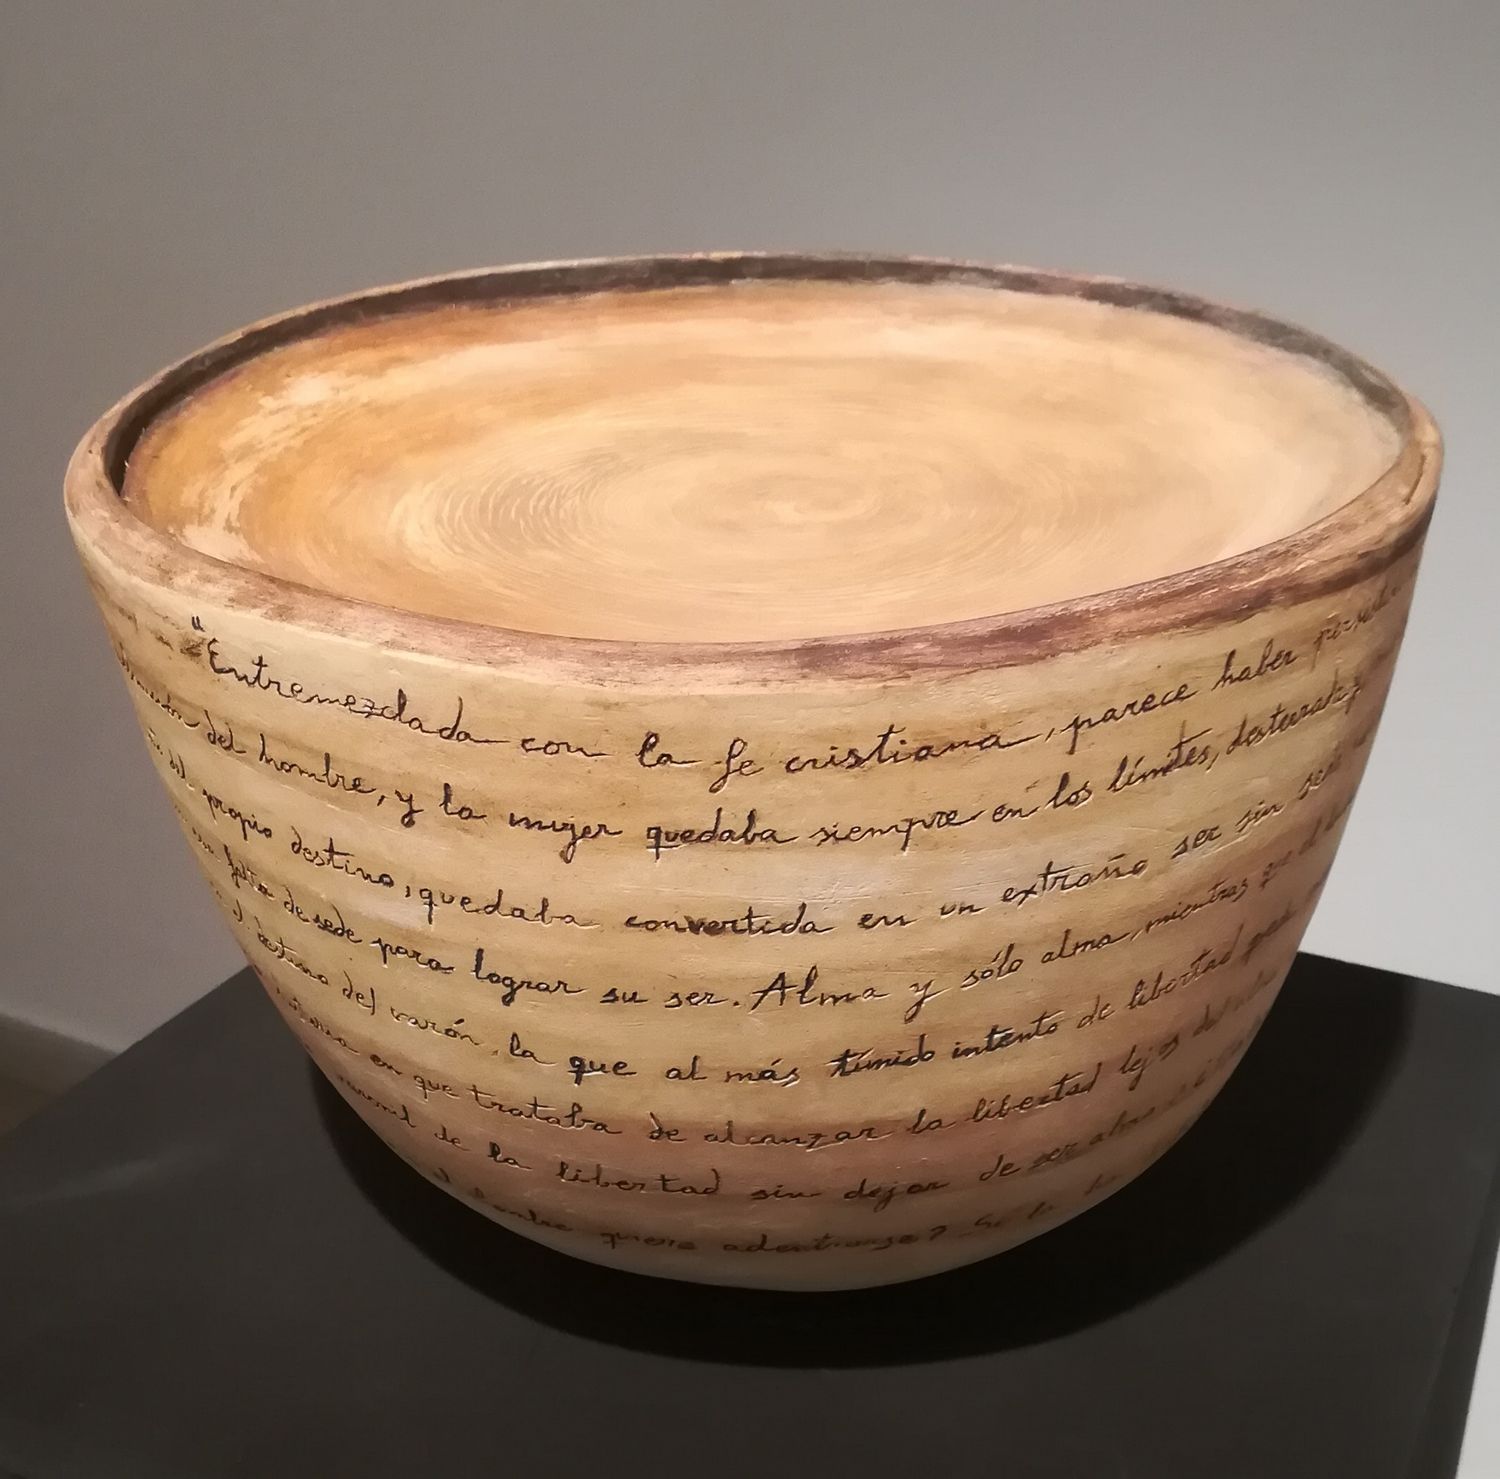 "Entremezclada con la fe cristiana, parece haber
del hombre, y la mujer quedaba siempre en los límites, desterrada y
del propio destino, quedaba convertida en un extraño ser sin
falta de sede para lograr su ser. Alma y sólo alma, mientras que el
destino del varón, la que al más tímido intento de libertad
en que trataba de alcanzar la libertad lejos del
de la libertad sin dejar de ser alma
quiere adentrarse? Si la